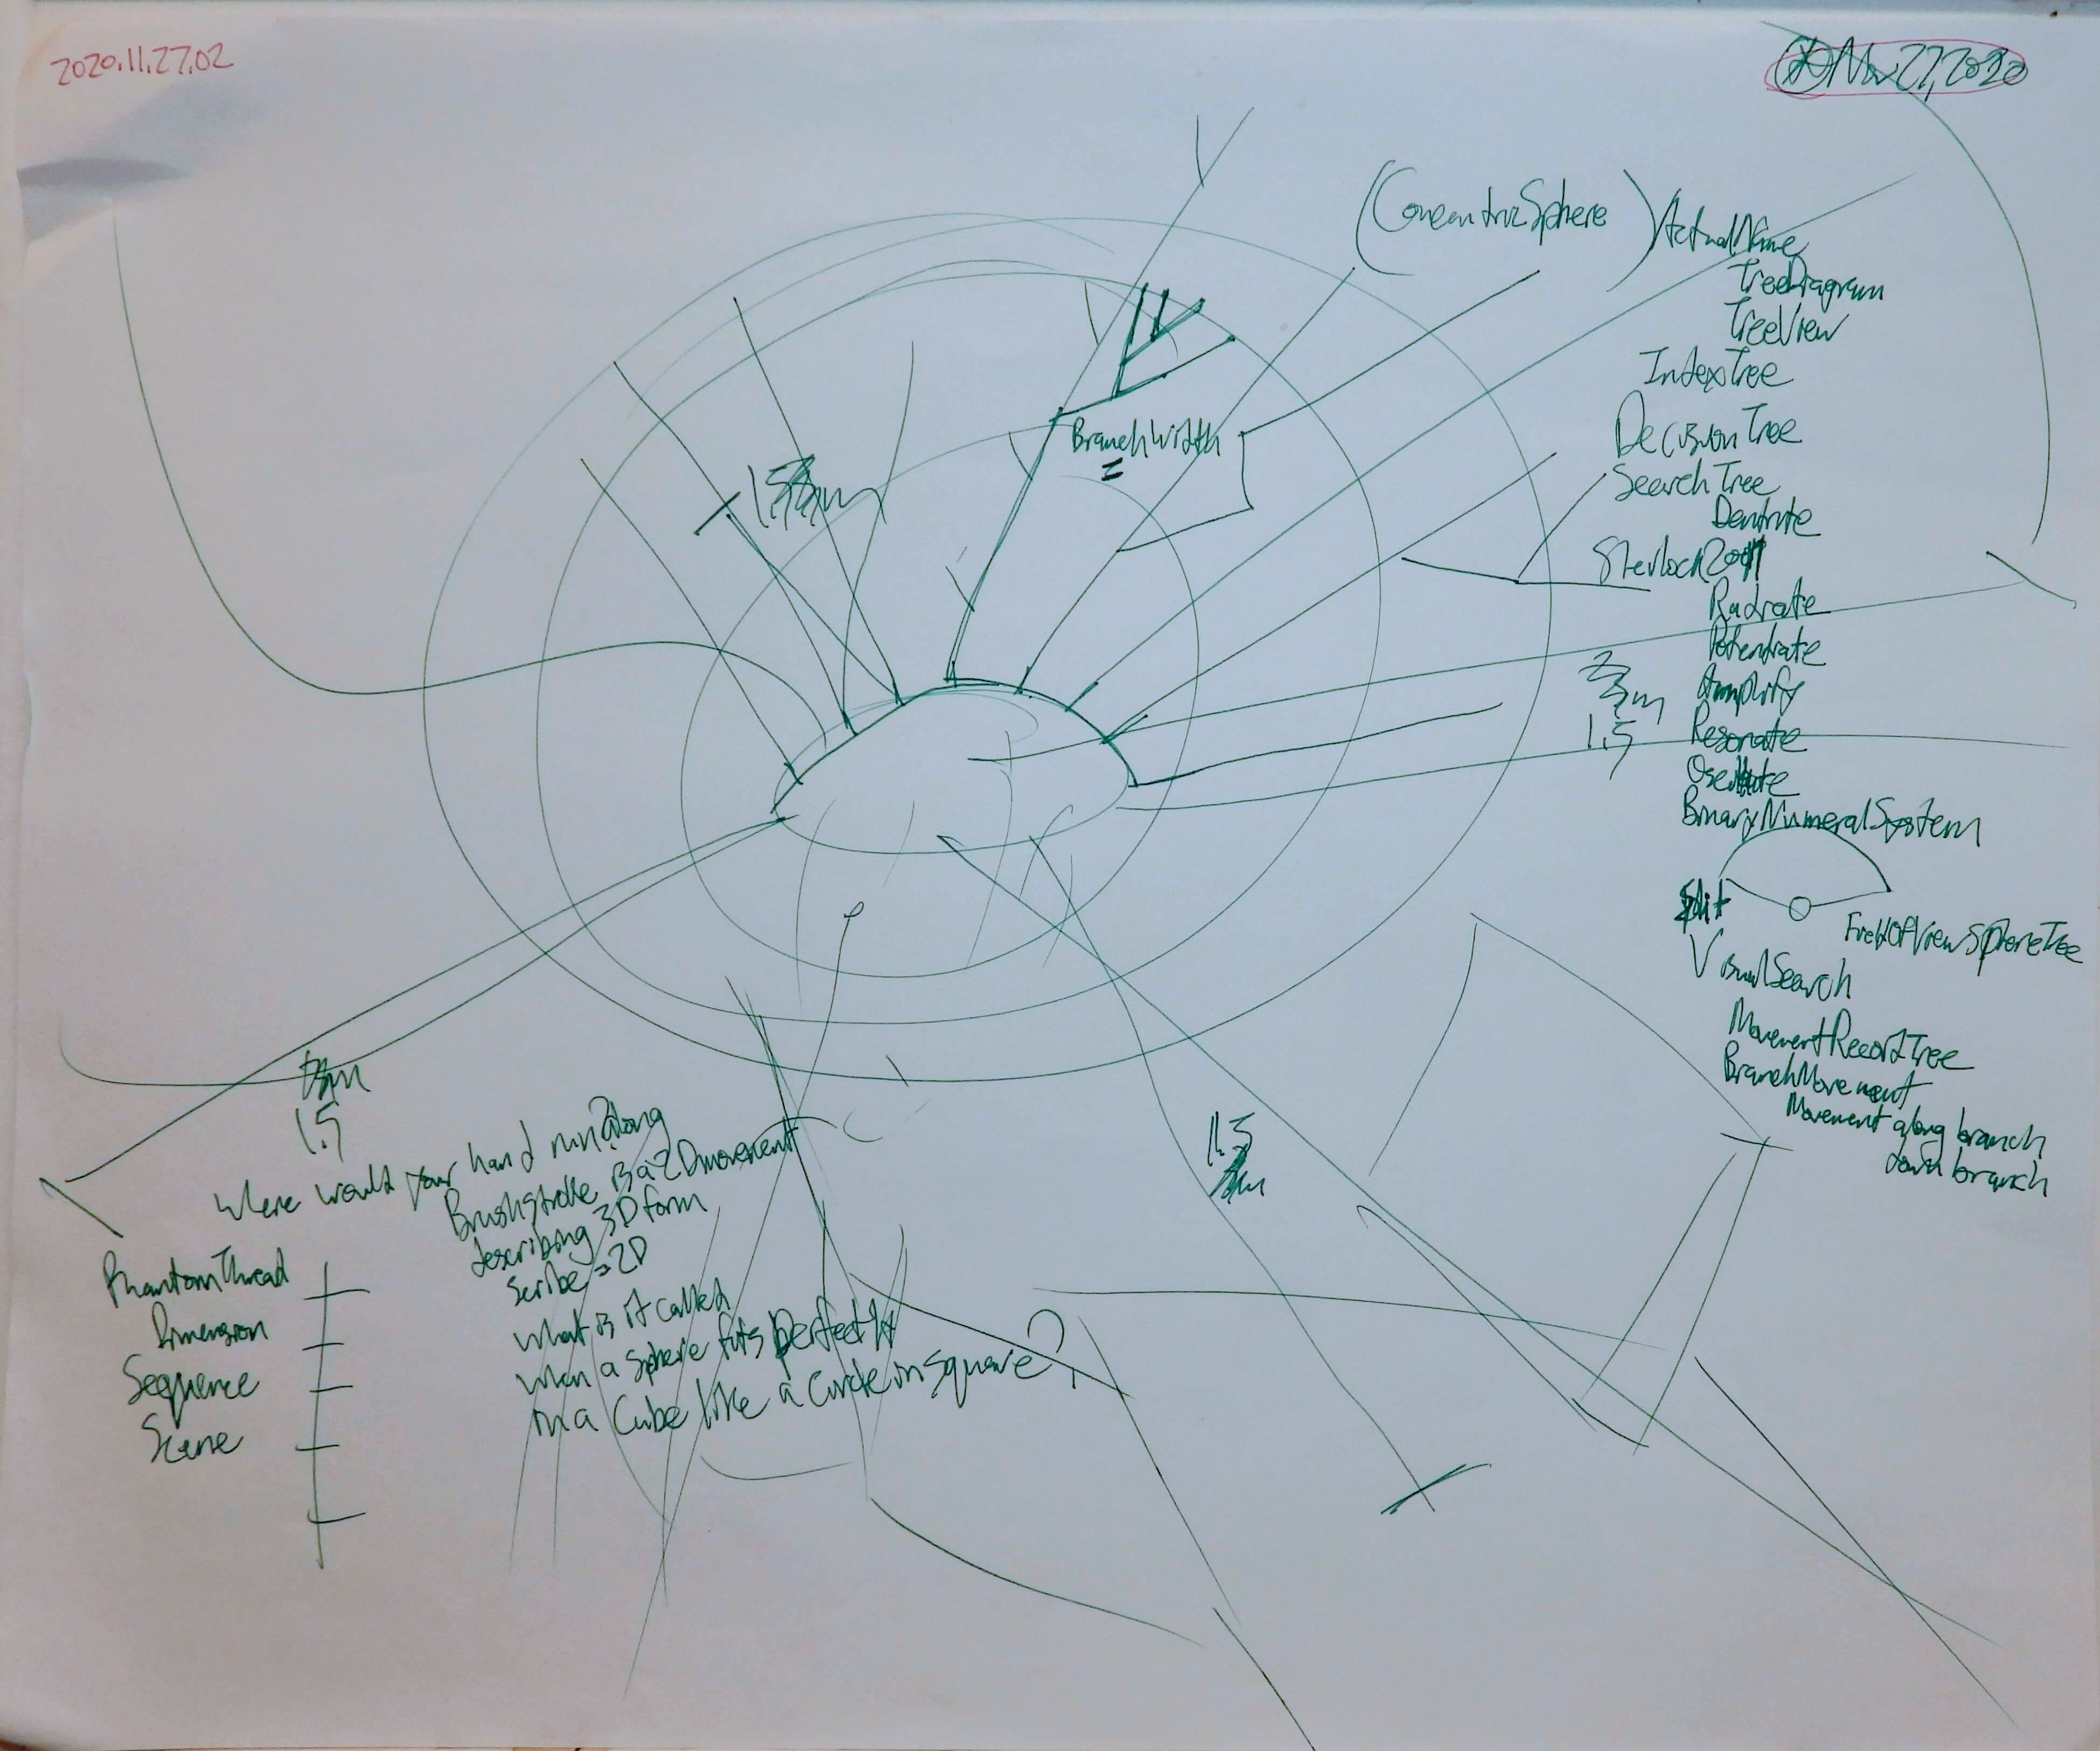 2020.11.27.02
Nov 27, 2020
(ConcentricSphere) ActualName
TreeDiagram
TreeView
IndexTree
DecisionTree
SearchTree
Dendrite
Sherlock2011
Radiate
Potentiate
Amplify
Resonate
Oscillate
BinaryNumeralSystem
Split
FieldOfViewSphereTree
VisualSearch
MovementRecordTree
BranchMovement
Movement along branch
down branch
BranchWidth
=
1.5
1.5
1.5
Where would your hand run along
Brushstroke is a 2D movement
describing 3D form
Scribe = 2D
What is it called
when a sphere fits perfectly
in a Cube like a circle in square?
PhantomThread
Dimension
Sequence
Scene